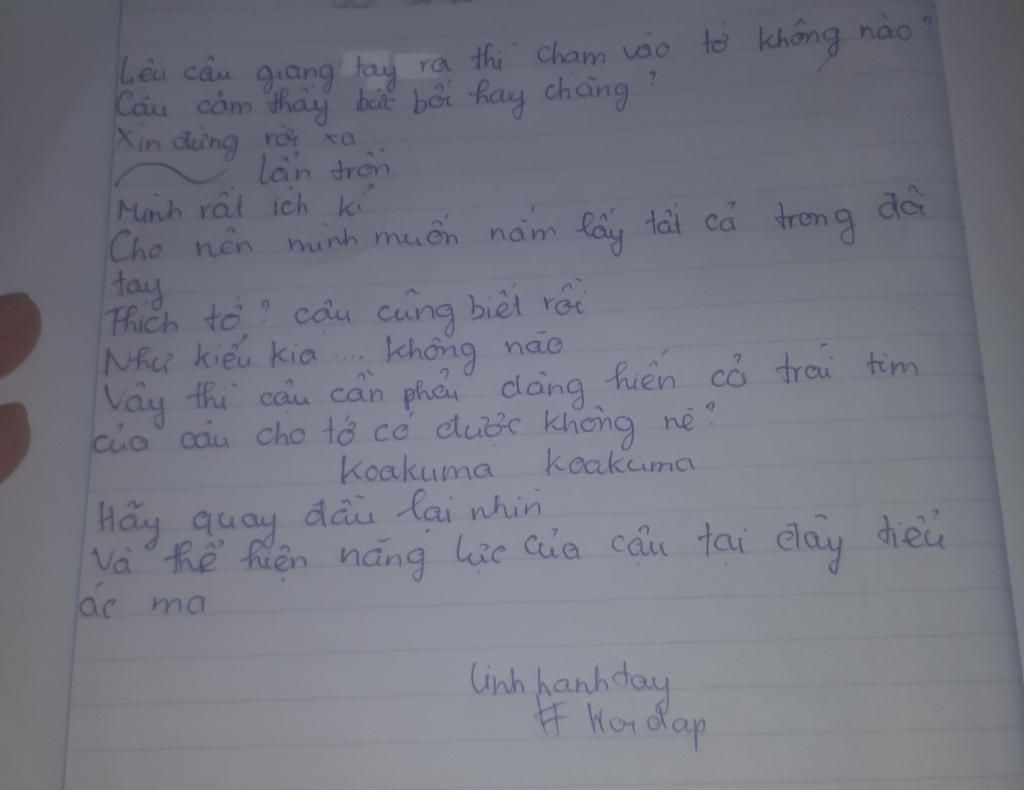 Liệu cậu giang tay ra thì chạm vào tớ không nào?
Cậu cảm thấy bứt bối hay chăng?
Xin đừng rời xa
lẩn trốn
Mình rất ích kỉ
Cho nên mình muốn nắm lấy tất cả trong đôi
tay
Thích tớ? cậu cũng biết rồi
Như kiểu kia... không nào
Vậy thì cậu cần phải dâng hiến cả trái tim
của cậu cho tớ có được không nè?
Koakuma Koakuma
Hãy quay đầu lại nhìn
Và thể hiện năng lực của cậu tại đây tiểu
ác ma
linhhanhday
# Hoidap